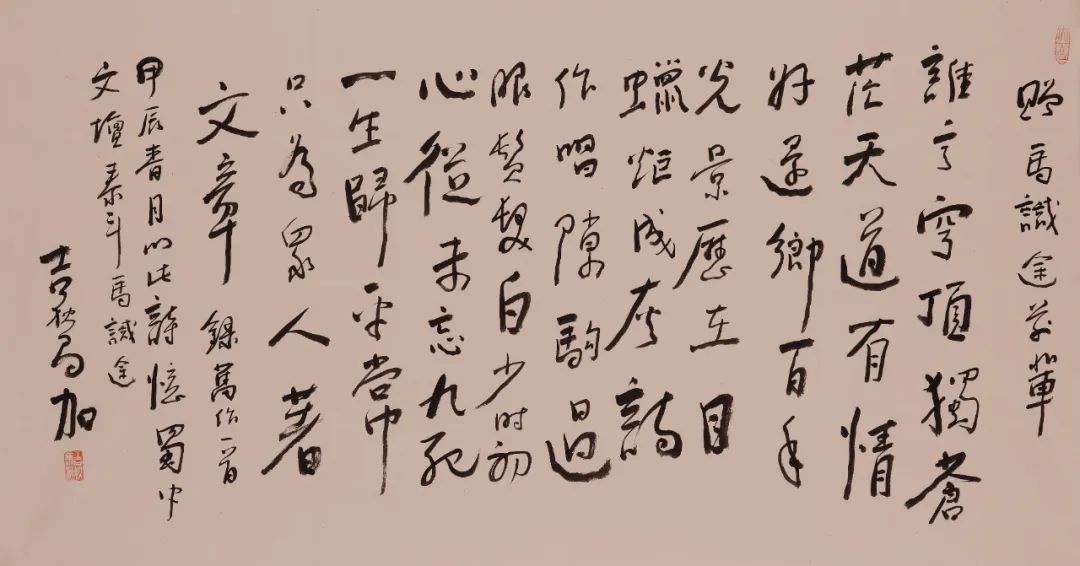 贈馬識途前輩
誰言穹頂獨蒼
茫天道有情
好還鄉百年
光景歷在目
蠟炬成灰詩
作唱隙駒過
眼鬢髮白少時初
心從未忘九死
一生歸平常
只為眾人著
文章 錄舊作一首
甲辰春月以此詩憶蜀中
文壇泰斗馬識途
吉狄馬加